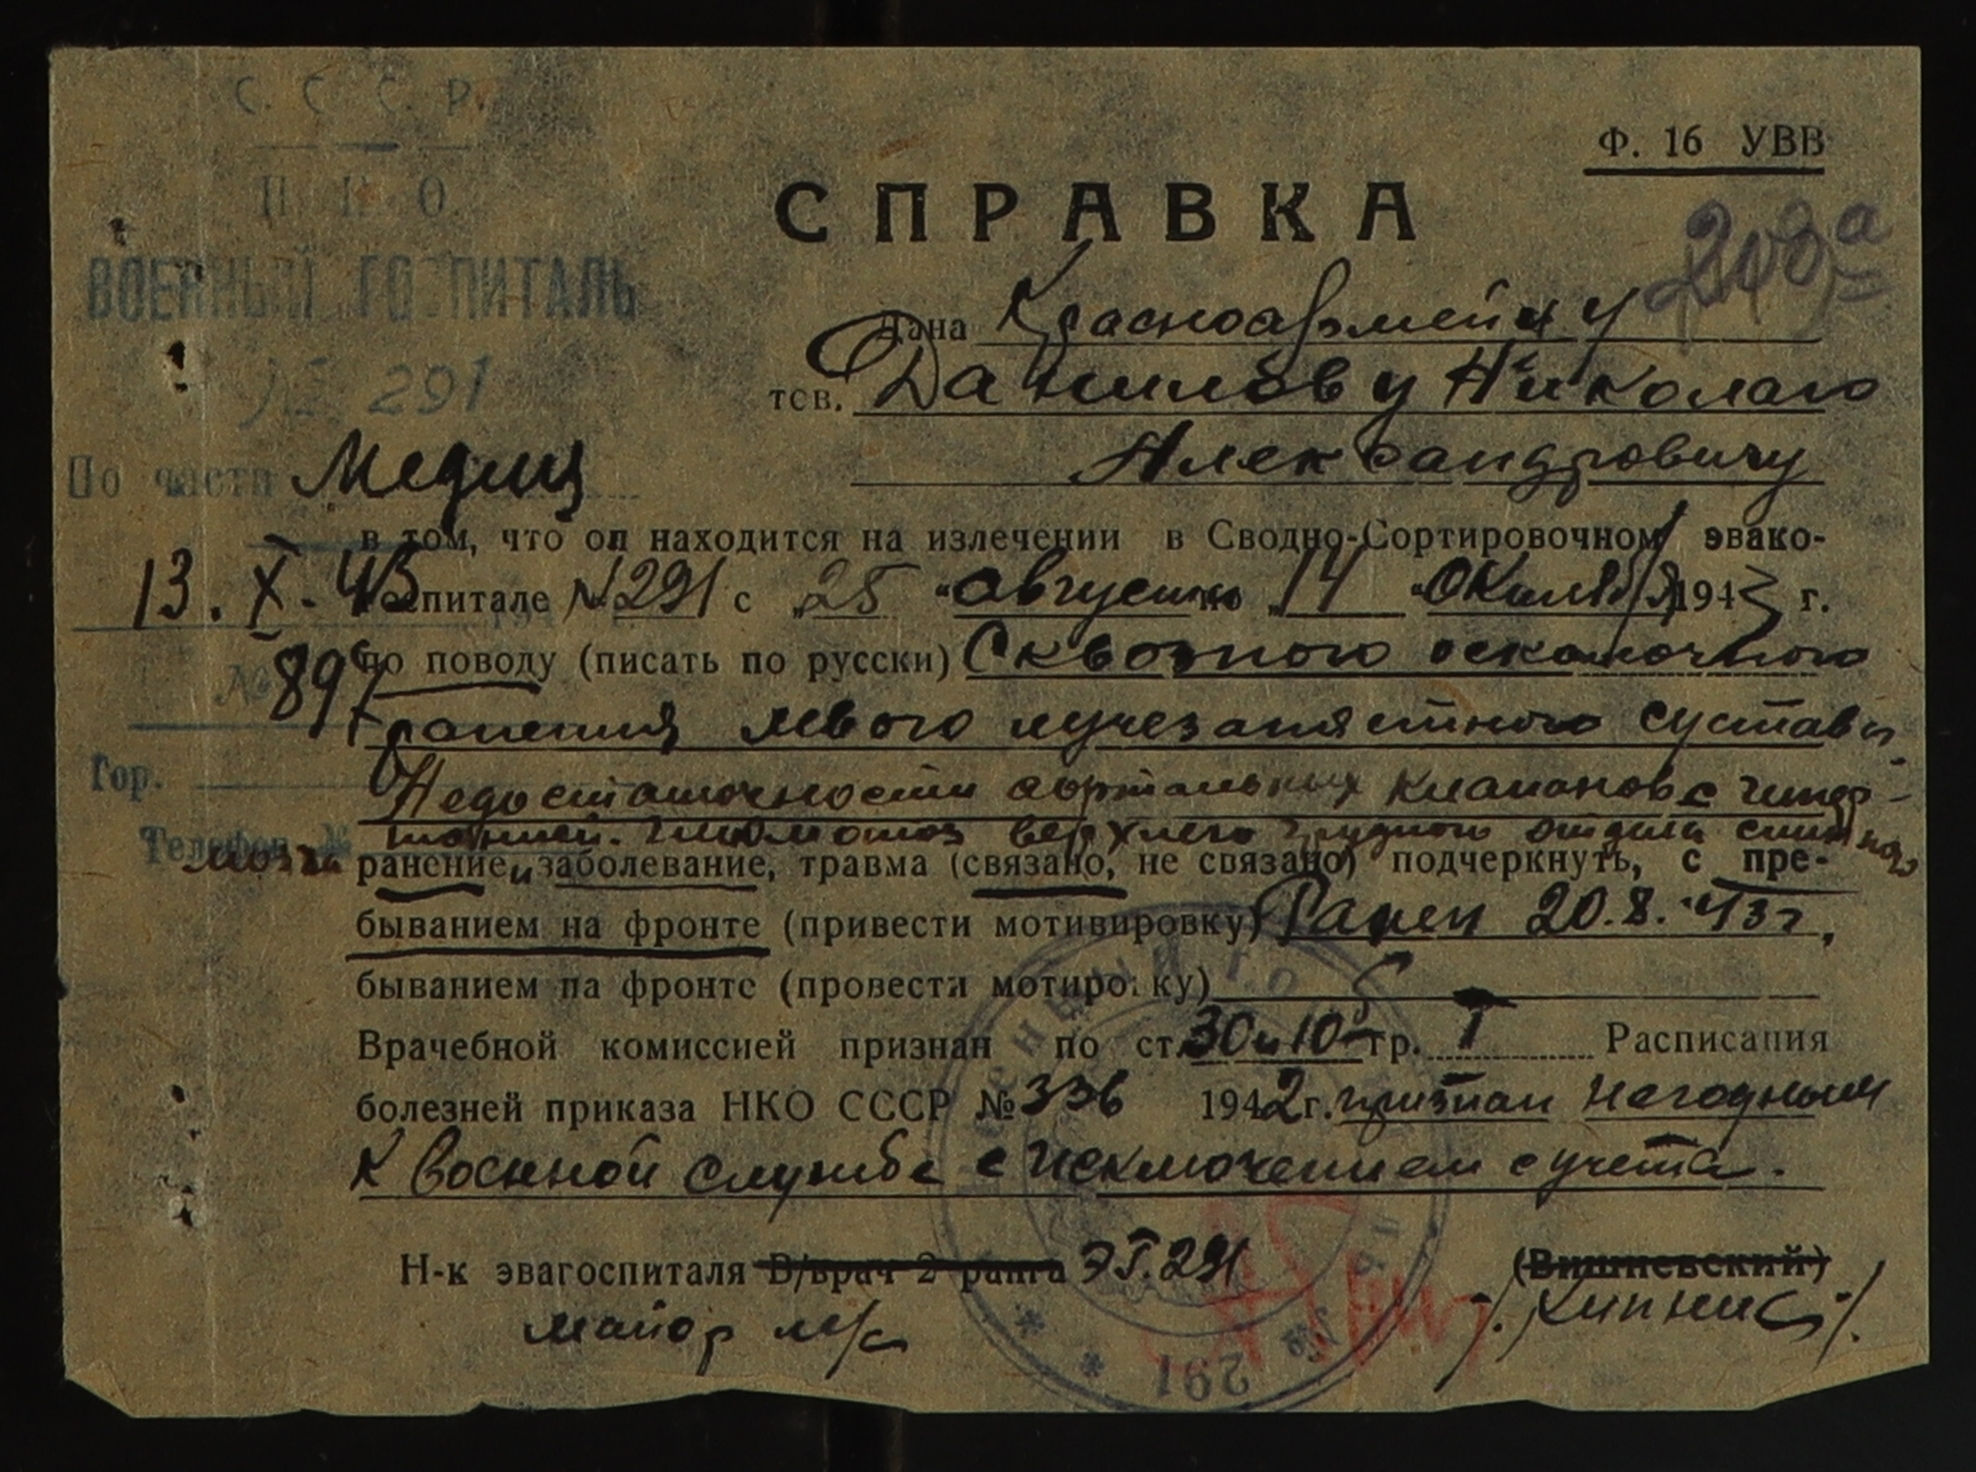 С. С. С. Р.
Н К О
ВОЕННЫЙ ГОСПИТАЛЬ
№ 291
По части Медиц
13. X. 43
194
№ 896
Гор.
Телефон №
Ф. 16 УВВ
СПРАВКА
208а
Дана Красноармейцу
тов. Данилову Николаю
Александровичу
в том, что он находится на излечении в Сводно-Сортировочном эвако-
госпитале №291 с "25 "августа по 14 "октября 1943 г.
по поводу (писать по русски) Сквозного осколочного
ранения левого лучезапястного сустава.
Недостаточности аортальных клапанов с гипер-
тонией. верхнего грудного отдела спинного
мозга ранение и заболевание, травма (связано, не связано) подчеркнуть, с пре-
быванием на фронте (привести мотивировку) Ранен 20.8.43 г,
быванием на фронте (провести мотиро. ку)
Врачебной комиссией признан по ст. 30 и 10 гр. I Расписания
болезней приказа НКО СССР №336 1942 г. признан негодным
к военной службе с исключением с учета.
Н-к эвагоспиталя В/врач 2 ранга ЭГ. 291 (Вишневский)
майор м/с /. Кипнис /.
291